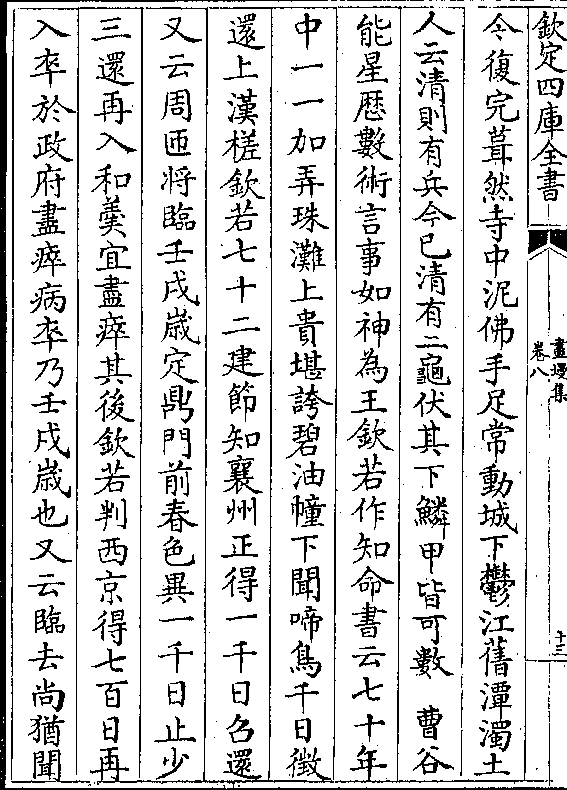 欽定四庫全書
畫墁集
卷八
十三
今復完葺然寺中泥佛手足常動城下鬱江舊潭濁土
人云清則有兵今已清有二龜伏其下鱗甲皆可數　曹谷
能星歴數術言事如神為王欽若作知命書云七十年
中一一加弄珠灘上貴堪誇碧油幢下聞啼鳥千日徴
還上漢槎欽若七十二建節知襄州正得一千日召還
又云周匝将臨壬戌嵗定鼎門前春色異一千日止少
三還再入和羮宜盡瘁其後欽若判西京得七百日再
入卒於政府盡瘁病卒乃壬戌嵗也又云臨去尚猶聞